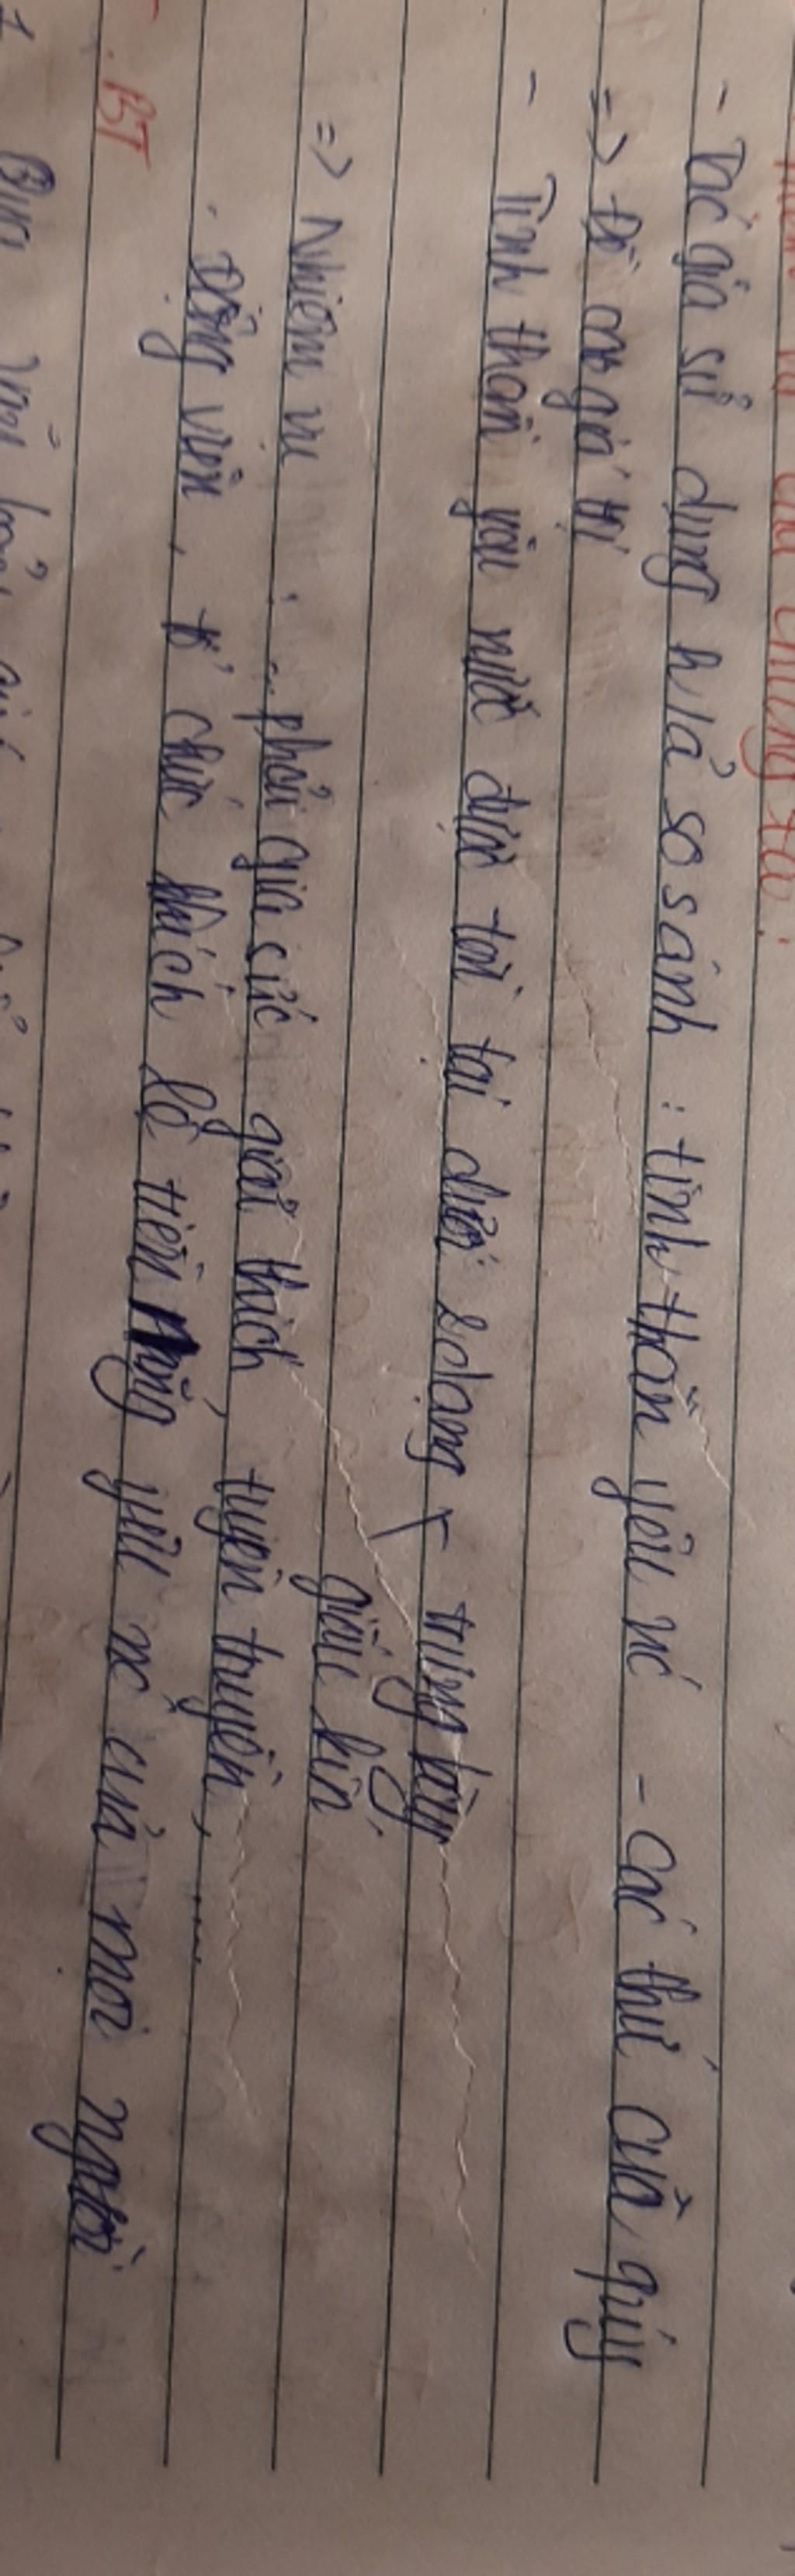 của chúng ta:
- Tác giả sử dụng h/ả so sánh : tinh thần yêu nc - các thứ của quý
=> Đề cao giá trị
- Tinh thần yêu nước được tồn tại dưới 2 dạng < trưng bày
giấu kín
=> Nhiệm vụ : - phải gia sức giải thích, tuyên truyền, ....
. Động viên, tổ chức khích lệ tiềm năng yêu nc của mọi người
. BT